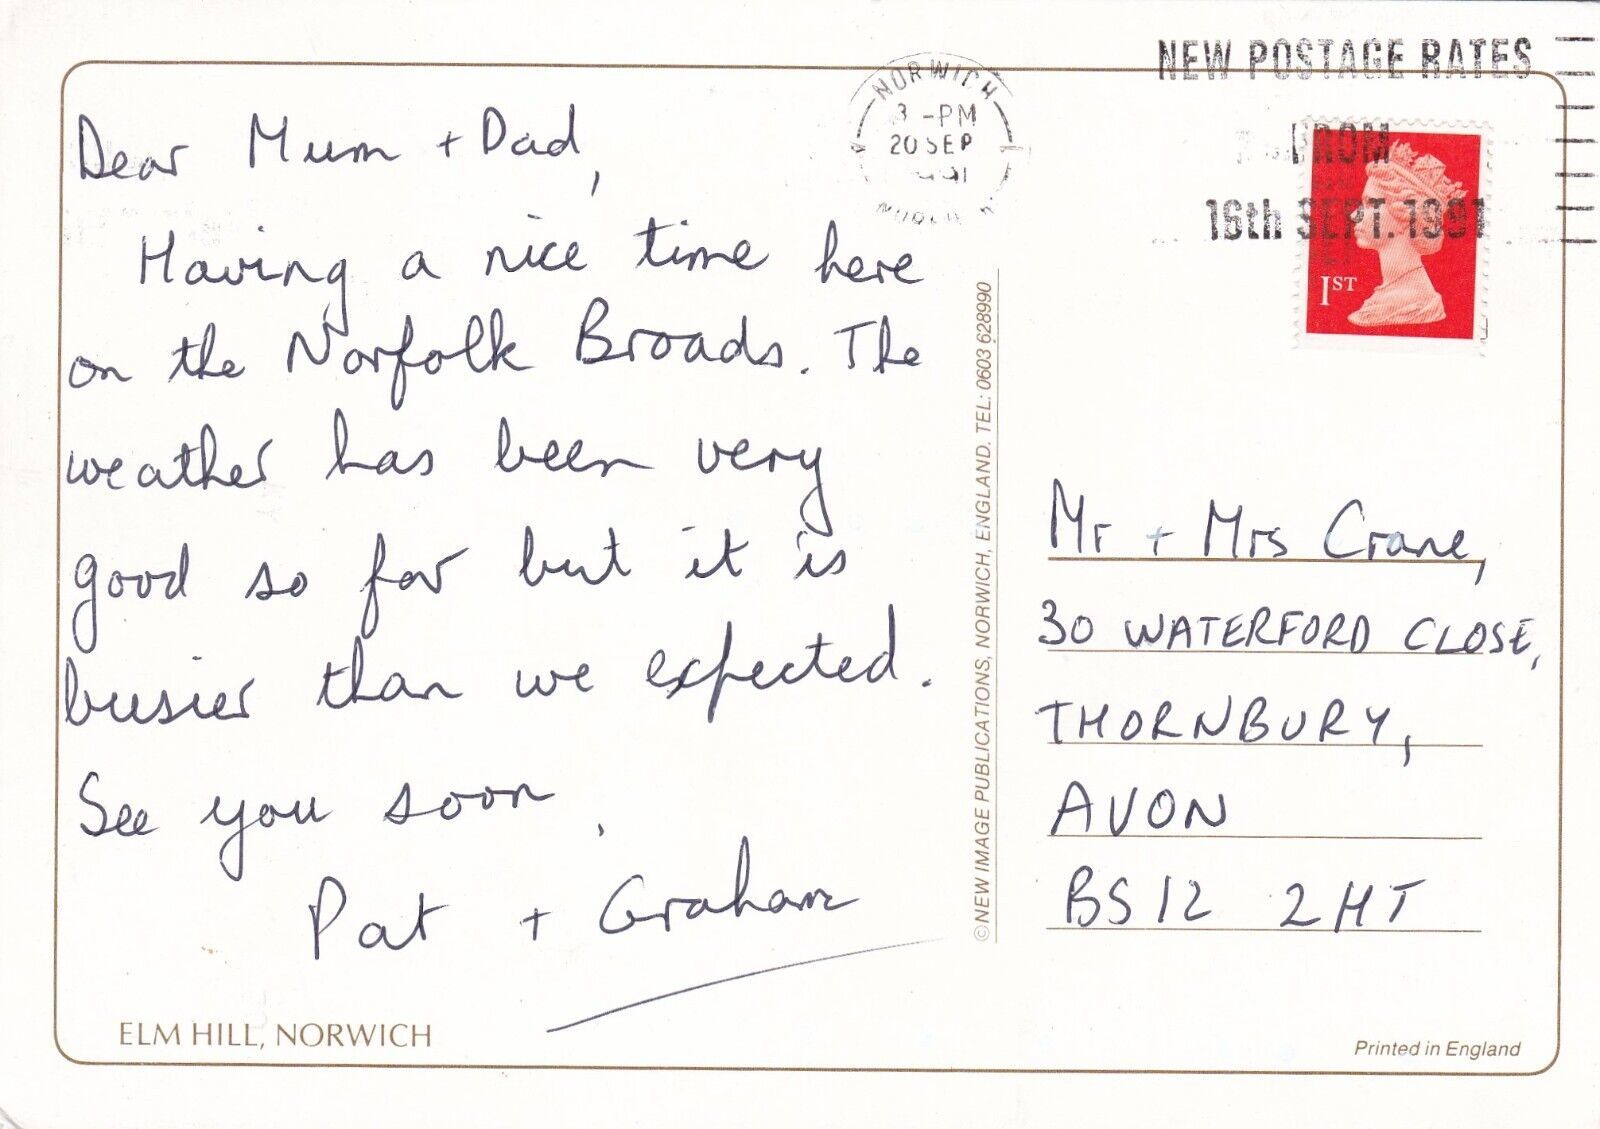 Dear Mum + Dad,
Having a nice time here
on the Norfolk Broads. The
weather has been very
good so far but it is
busier than we expected.
See you soon,
Pat + Graham
ELM HILL, NORWICH
© NEW IMAGE PUBLICATIONS, NORWICH, ENGLAND. TEL: 0603 628990
NORWICH
3 -PM
20 SEP
NEW POSTAGE RATES
FROM
16th SEPT. 1991
1ST
Mr + Mrs Crane,
30 WATERFORD CLOSE,
THORNBURY,
AVON
BS12 2HT
Printed in England